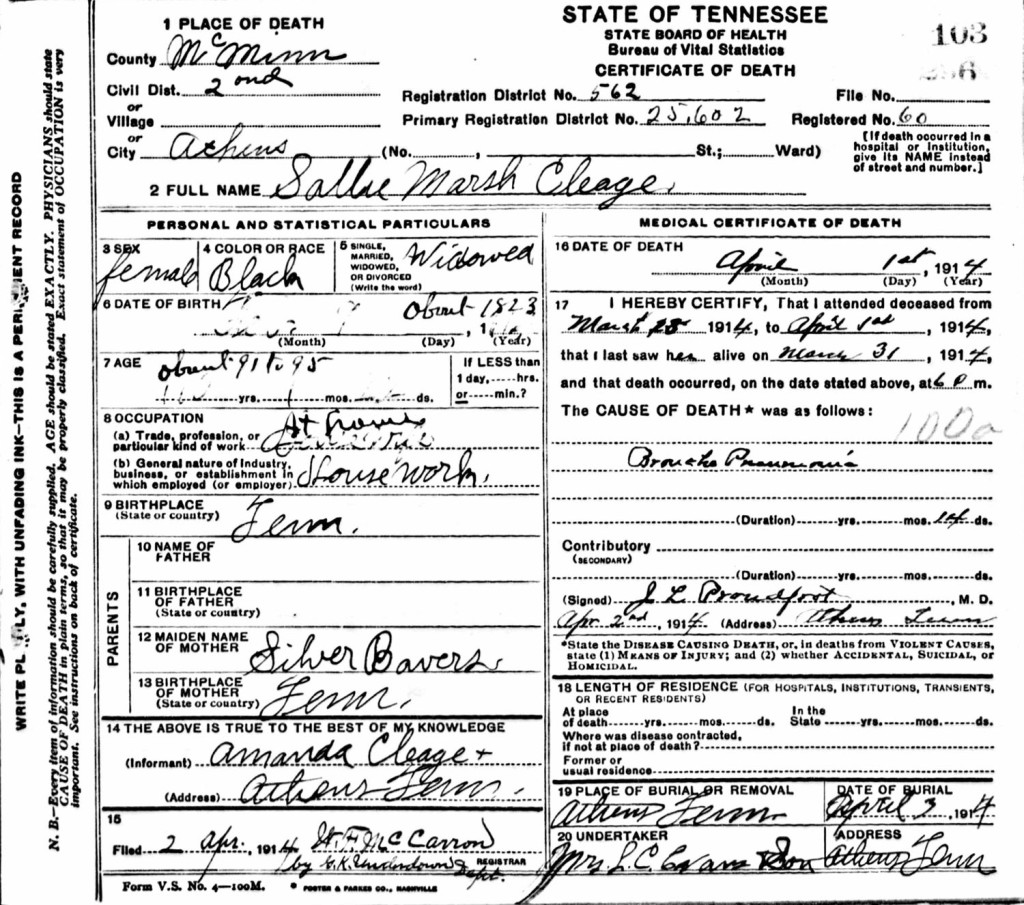 STATE OF TENNESSEE
STATE BOARD OF HEALTH
Bureau of Vital Statistics
CERTIFICATE OF DEATH
103
1 PLACE OF DEATH
County McMinn
Civil Dist. 2ond
or
Village
or
City Athens (No. , St.; Ward)
Registration District No. 562 File No.
Primary Registration District No. 25,602 Registered No. 60
[If death occurred in a
hospital or institution,
give its NAME instead
of street and number.]
2 FULL NAME Sallie Marsh Cleage
PERSONAL AND STATISTICAL PARTICULARS
3 SEX female
4 COLOR OR RACE Black
5 SINGLE, MARRIED, WIDOWED, OR DIVORCED (Write the word) Widowed
6 DATE OF BIRTH about 1823
(Month) (Day) , 1 (Year)
7 AGE about 91 to 95
yrs. mos. ds.
If LESS than
1 day, hrs.
or min.?
8 OCCUPATION
(a) Trade, profession, or
particular kind of work At home
(b) General nature of Industry,
business, or establishment in
which employed (or employer) House Work.
9 BIRTHPLACE
(State or country) Tenn.
PARENTS
10 NAME OF
FATHER
11 BIRTHPLACE
OF FATHER
(State or country)
12 MAIDEN NAME
OF MOTHER Silver Bavers
13 BIRTHPLACE
OF MOTHER
(State or country) Tenn.
14 THE ABOVE IS TRUE TO THE BEST OF MY KNOWLEDGE
(Informant) Amanda Cleage
(Address) Athens Tenn.
15
Filed 2 Apr. , 1914 H. F. McCarron
by G. K. Underdown Dept.
REGISTRAR
Form V.S. No. 4—100M.
FOSTER & PARKES CO., NASHVILLE
MEDICAL CERTIFICATE OF DEATH
16 DATE OF DEATH
April 1st , 1914
(Month) (Day) (Year)
17 I HEREBY CERTIFY, That I attended deceased from
March 25 1914, to April 1st , 1914,
that I last saw her alive on March 31 , 1914,
and that death occurred, on the date stated above, at 6 P m.
The CAUSE OF DEATH* was as follows:
100a
Broncho Pneumonia
(Duration) yrs. mos. 14 ds.
Contributory
(SECONDARY)
(Duration) yrs. mos. ds.
(Signed) J L Proudfoot , M. D.
Apr 2nd , 1914 (Address) Athens Tenn
*State the DISEASE CAUSING DEATH, or, in deaths from VIOLENT CAUSES,
state (1) MEANS OF INJURY; and (2) whether ACCIDENTAL, SUICIDAL, or
HOMICIDAL.
18 LENGTH OF RESIDENCE (FOR HOSPITALS, INSTITUTIONS, TRANSIENTS,
OR RECENT RESIDENTS)
At place
of death yrs. mos. ds. In the State yrs. mos. ds.
Where was disease contracted,
if not at place of death?
Former or
usual residence
19 PLACE OF BURIAL OR REMOVAL
Athens Tenn
DATE OF BURIAL
April 3 , 1914
20 UNDERTAKER
Mrs L. C. Evans & Son
ADDRESS
Athens Tenn
WRITE PLAINLY, WITH UNFADING INK—THIS IS A PERMANENT RECORD
N. B.—Every item of information should be carefully supplied. AGE should be stated EXACTLY. PHYSICIANS should state
CAUSE OF DEATH in plain terms, so that it may be properly classified. Exact statement of OCCUPATION is very
important. See instructions on back of certificate.